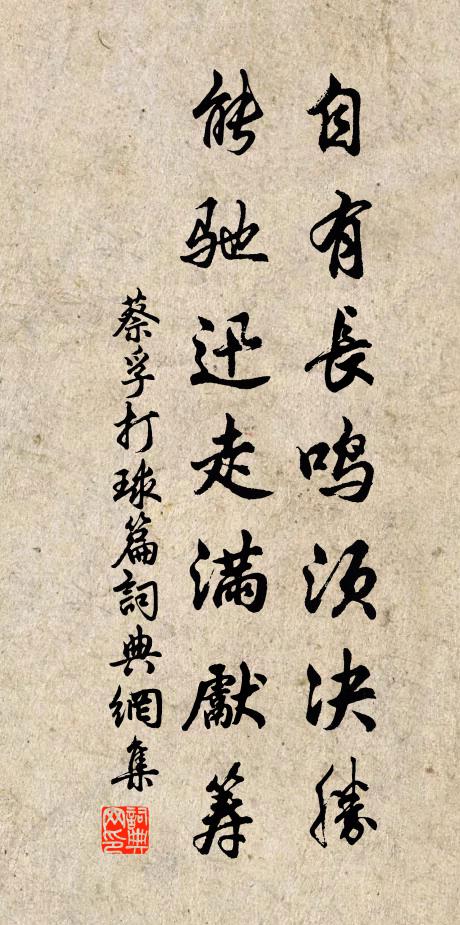 自有長鳴須決勝
能馳迅走滿獻筹
蔡孚打球篇詞典網集
詞典
网印